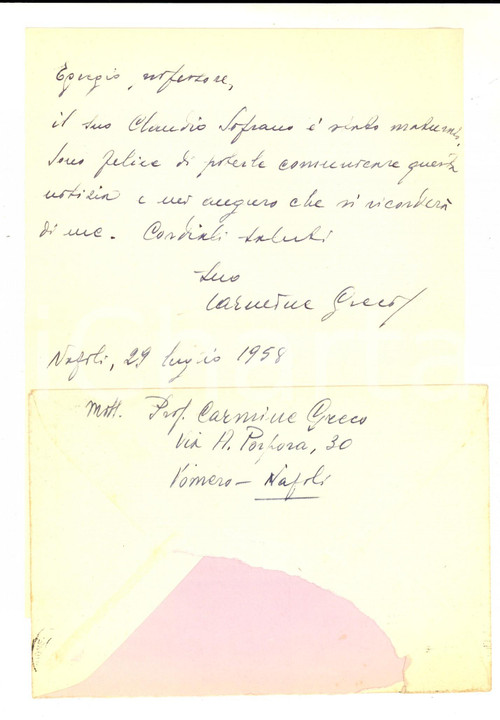 Egregio professore,
il suo Claudio Sofrano è stato maturato.
Sono felice di poterle comunicare questa
notizia e mi auguro che si ricorderà
di me. Cordiali saluti
suo
Carmine Greco
Napoli, 29 luglio 1958
Mitt. Prof. Carmine Greco
Via A. Porpora, 30
Vomero - Napoli